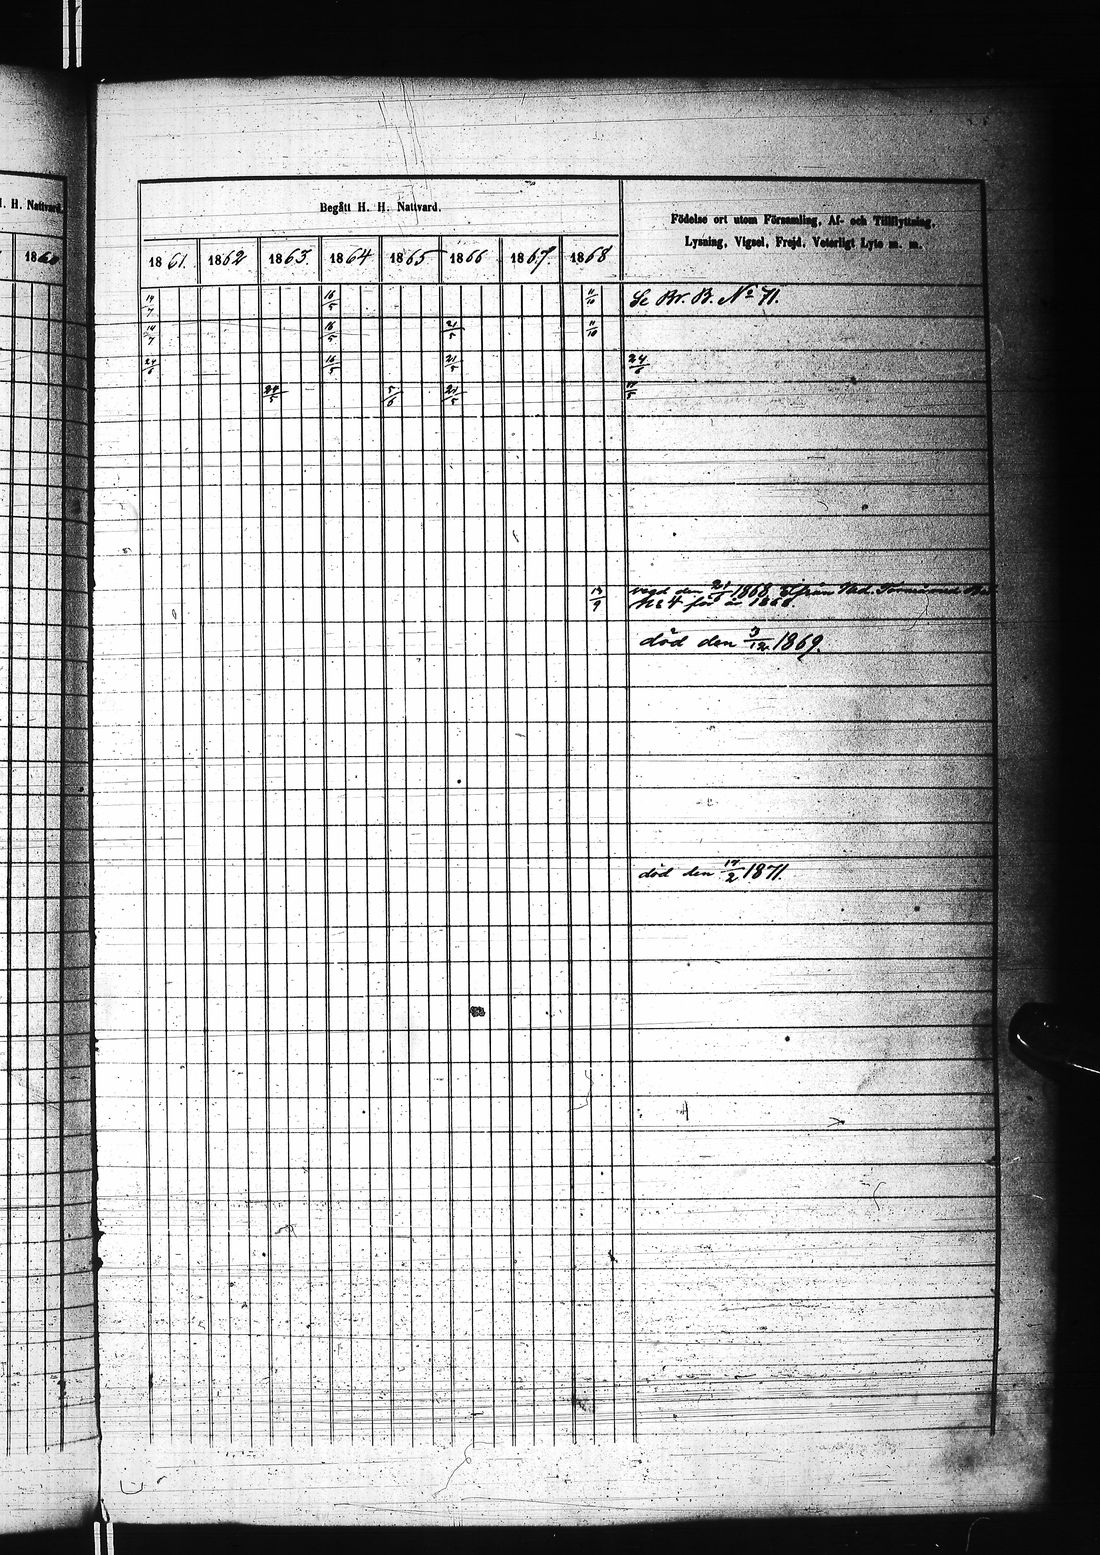 H. Nattvard.
18
Begått H. H. Nattvard.
Födelse ort utom Församling, Af- och Tillflyttning,
Lysning, Vigsel, Frejd, Veterligt Lyte m. m.
1861. 1862 1863 1864 1865 1866 1867. 1868
14/7 16/5 11/10 Se Br. B. No 71.
14/7 16/5 21/5 11/10
24/6 16/5 21/5 24/6
24/5 5/6 21/5
13/9 vigd den 21/ 1868.
No 4 för år 1868.
död den 3/12 1869.
död den 17/2 1871.